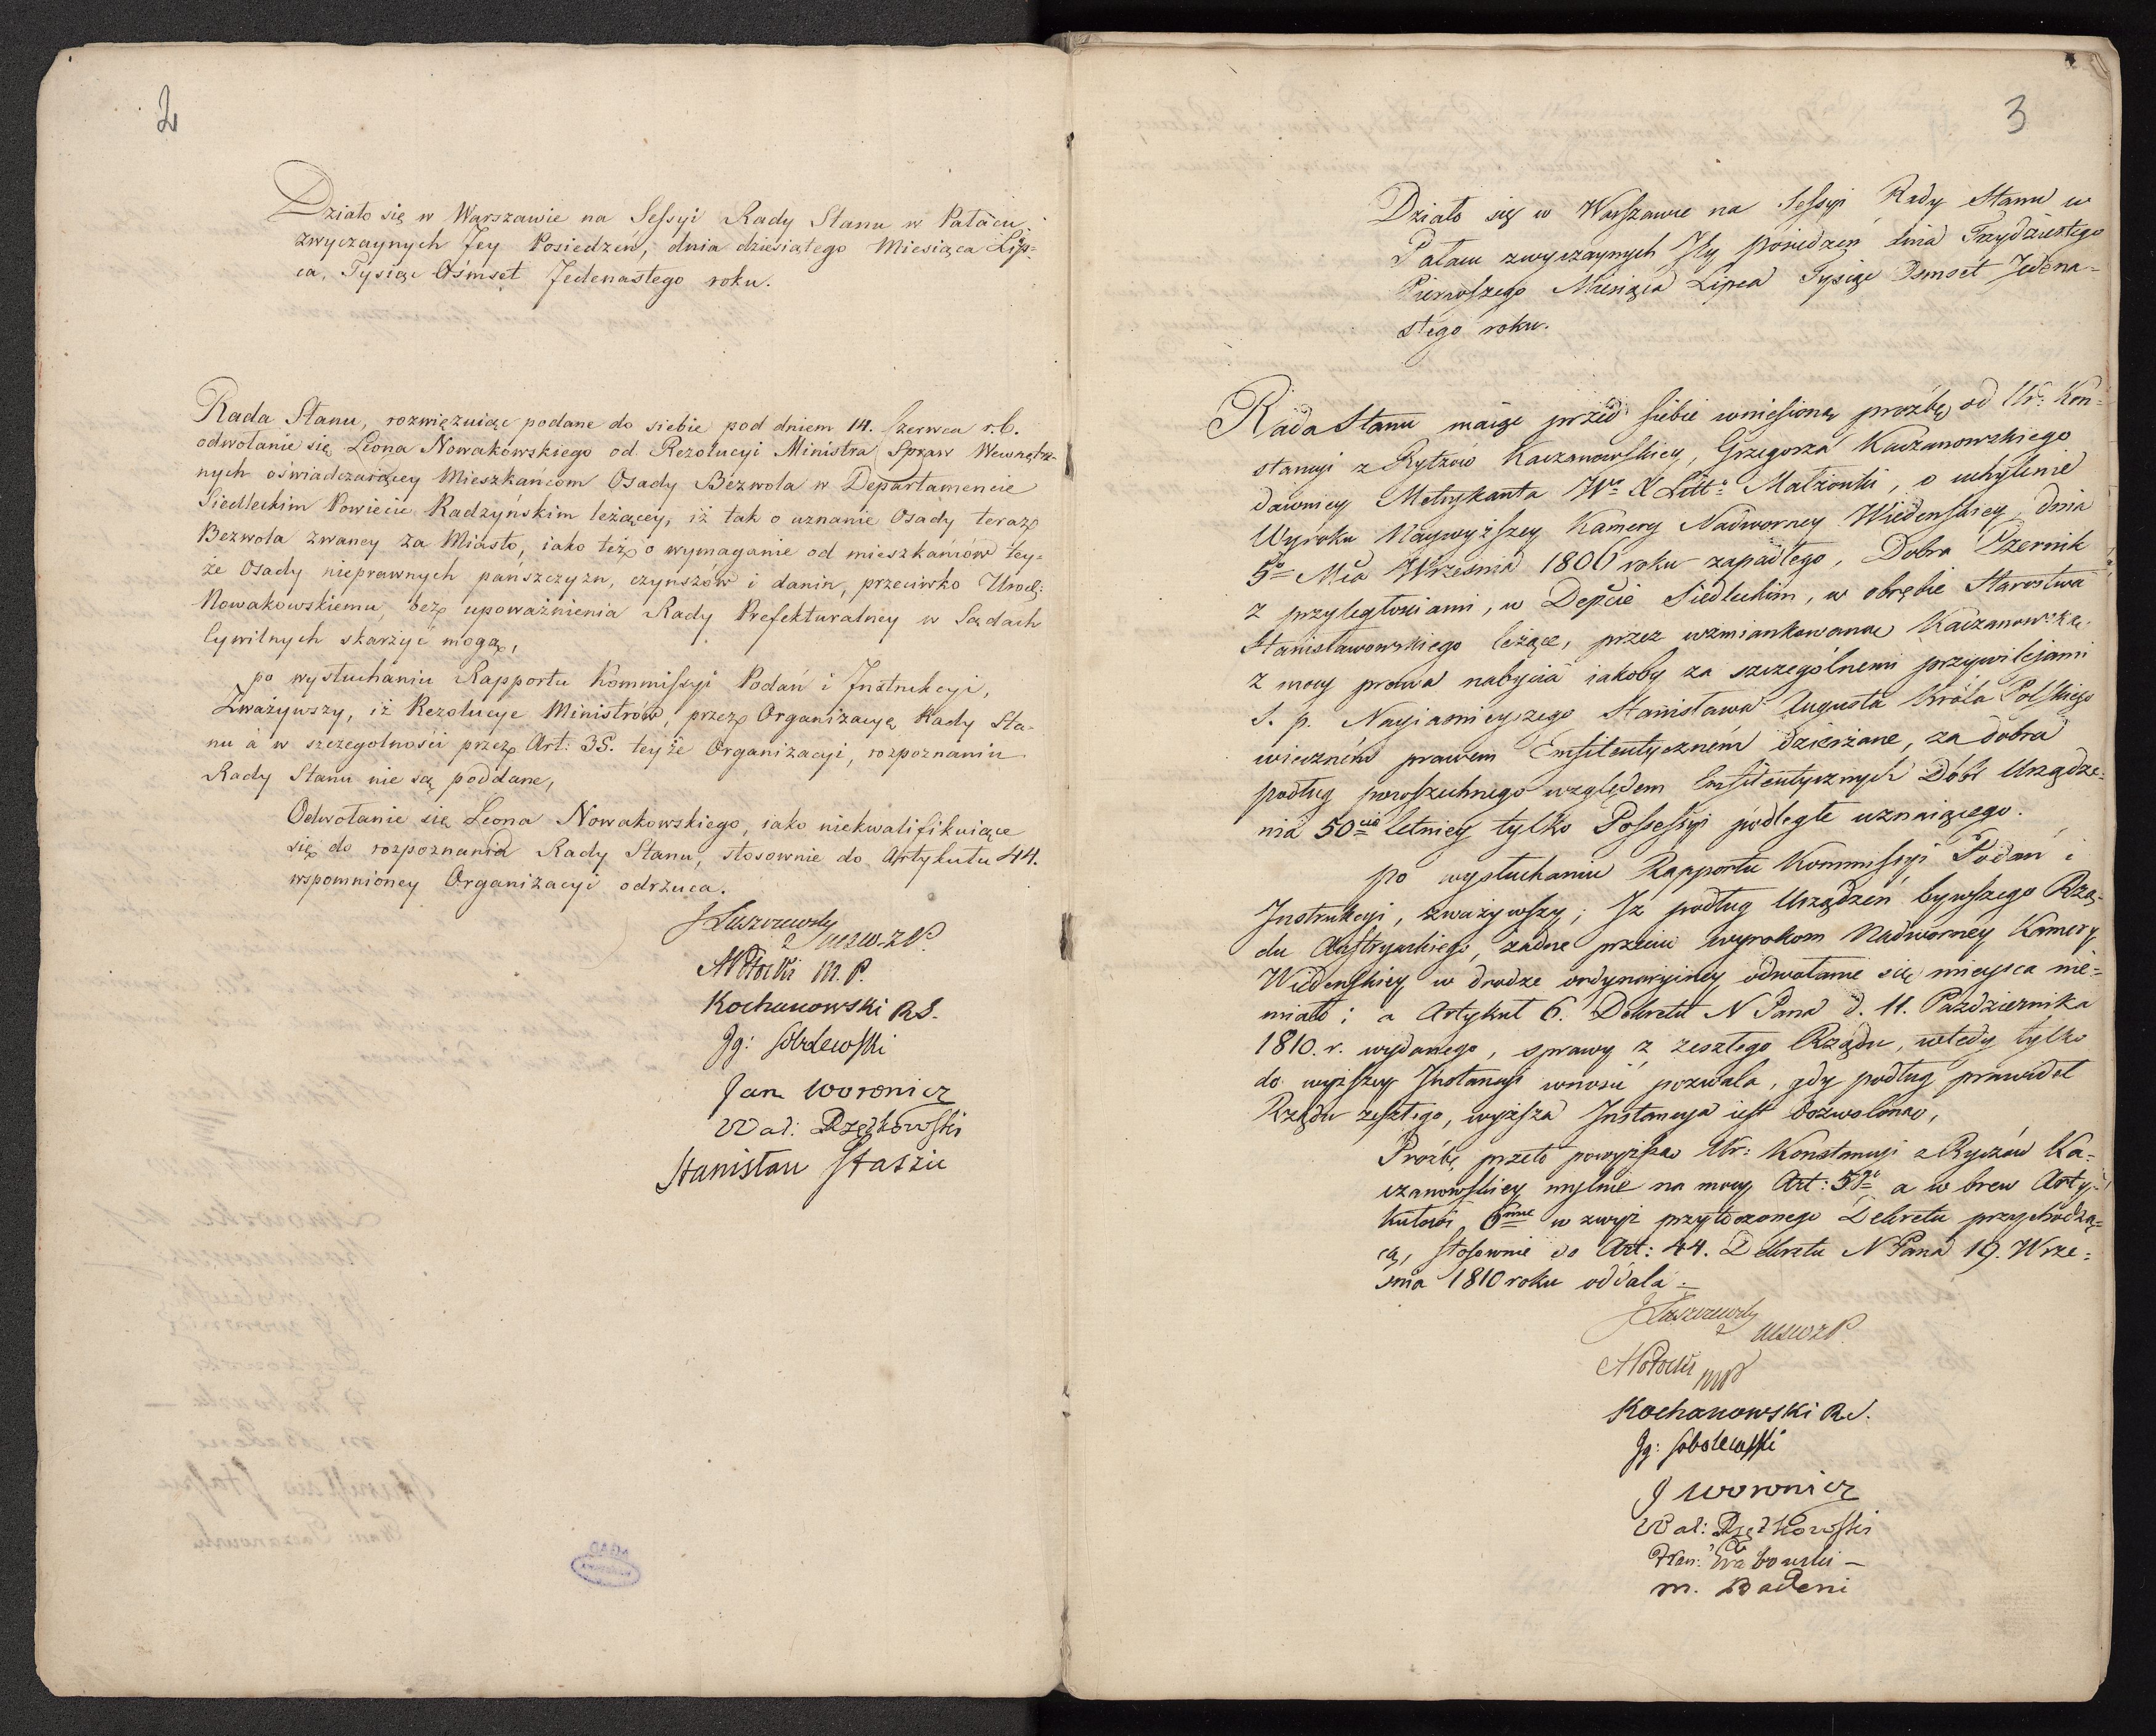 2
Działo się w Warszawie na Sessyi Rady Stanu w Pałacu
zwyczaynych Jey Posiedzeń, dnia dziesiątego Miesiąca Lip-
ca, Tysiąc Ośmset Jedenastego roku.
Rada Stanu, rozwięzuiąc podane do siebie pod dniem 14. Czerwca r.b.
odwołanie się Leona Nowakowskiego od Rezolucyi Ministra Spraw Wewnętrz-
nych oświadczaiącey Mieszkańcom Osady Bezwola w Departamencie
Siedleckim Powiecie Radzyńskim leżącey, iż tak o uznanie Osady teraz
Bezwola zwaney za Miasto, iako też o wymaganie od mieszkańców tey-
że Osady nieprawnych pańszczyzn, czynszów i danin, przeciwko Urodz:
Nowakowskiemu, bez upoważnienia Rady Prefekturalney w Sądach
Cywilnych skarżyć mogą,
po wysłuchaniu Rapportu Kommissyi Podań i Instrukcyi,
Zważywszy, iż Rezolucye Ministrów, przez Organizacyę Rady Sta-
nu a w szczegolności przez Art: 35. teyże Organizacyi, rozpoznaniu
Rady Stanu nie są poddane,
Odwołanie się Leona Nowakowskiego, iako niekwalifikuiące
się do rozpoznania Rady Stanu, stosownie do Artykułu 44.
wspomnioney Organizacyi odrzuca.
JŁuszczewsky
A Potocki M. P.
Kochanowski RS.
Ig: Sobolewski
Jan Woronicz
Wal: Rzętkowski
Stanisław Staszic
3
Działo się w Warszawie na Sessyi Rady Stanu w
Pałacu zwyczaynych Jey posiedzeń dnia Trzydziestego
Pierwszego Miesiąca Lipca Tysiąc Osmset Jedena-
stego roku.
Rada Stanu maiąc przed siebie wniesioną prozbę od Ur: Kon-
stancyi z Kaczanowskiey, Grzegorza Kaczanowskiego
dawniey Metrykanta Małżonki, o uchylenie
Wyroku Naywyższey Kamery Nadworney Wiedenskiey, dnia
5go Mca Września 1806 roku zapadłego, Dobra Czernik
z przyległosciami, w Depcie Siedleckim, w obrębie Starostwa
Stanisławowskiego leżące, przez wzmiankowaną Kaczanowską
z mocy prawa nabycia iakoby za szczególnemi przywilejami
S. p. Nayiasnieyszego Stanisława Augusta Króla Polskiego
wiecznem prawem Emfiteutycznem dzierżane, za dobra
podług powszechnego względem Emfiteutycznych Dóbr Urządze-
nia 50cio letniey tylko Possessyi podległe uznaiącego.
po wysłuchaniu Rapportu Kommissyi Podań i
Instrukcyi, zważywszy, Iż podług Urządzeń bywszego Rzą-
du Austryackiego, żadne przeciw wyrokom Nadworney Kamery
Wiedenskiey w drodze ordynaryiney odwołanie się mieysca nie-
miało; a Artykuł 6. Dekretu N Pana d. 11. Pazdziernika
1810. r. wydanego, sprawy z zeszłego Rządu, wtedy tylko
do wyższey Instancyi wnosić pozwala, gdy podług prawideł
Rządu zeszłego, wyższa Instancya iest dozwoloną,
Proźbę przeto powyższą Ur: Konstancyi z Ka-
czanowskiey mylnie na mocy Art: 5go a w brew Arty-
kułowi 6mu w zwyż przytoczonego Dekretu przychodzą-
cą, stosownie do Art: 44. Dekretu N Pana 19. Wrze-
snia 1810 roku oddala.
JŁuszczewsky
A Potocki MP
Kochanowski R.S.
Ig: Sobolewski
J Woronicz
Wal: Rzętkowski
Fran: Grabowski
M. Badeni